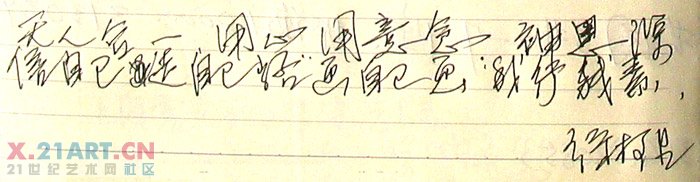 天人合一 用心 用意念 神思源
信自己 走自己路 画自己画 我行我素,
X.21ART.CN
21世纪艺术网社区